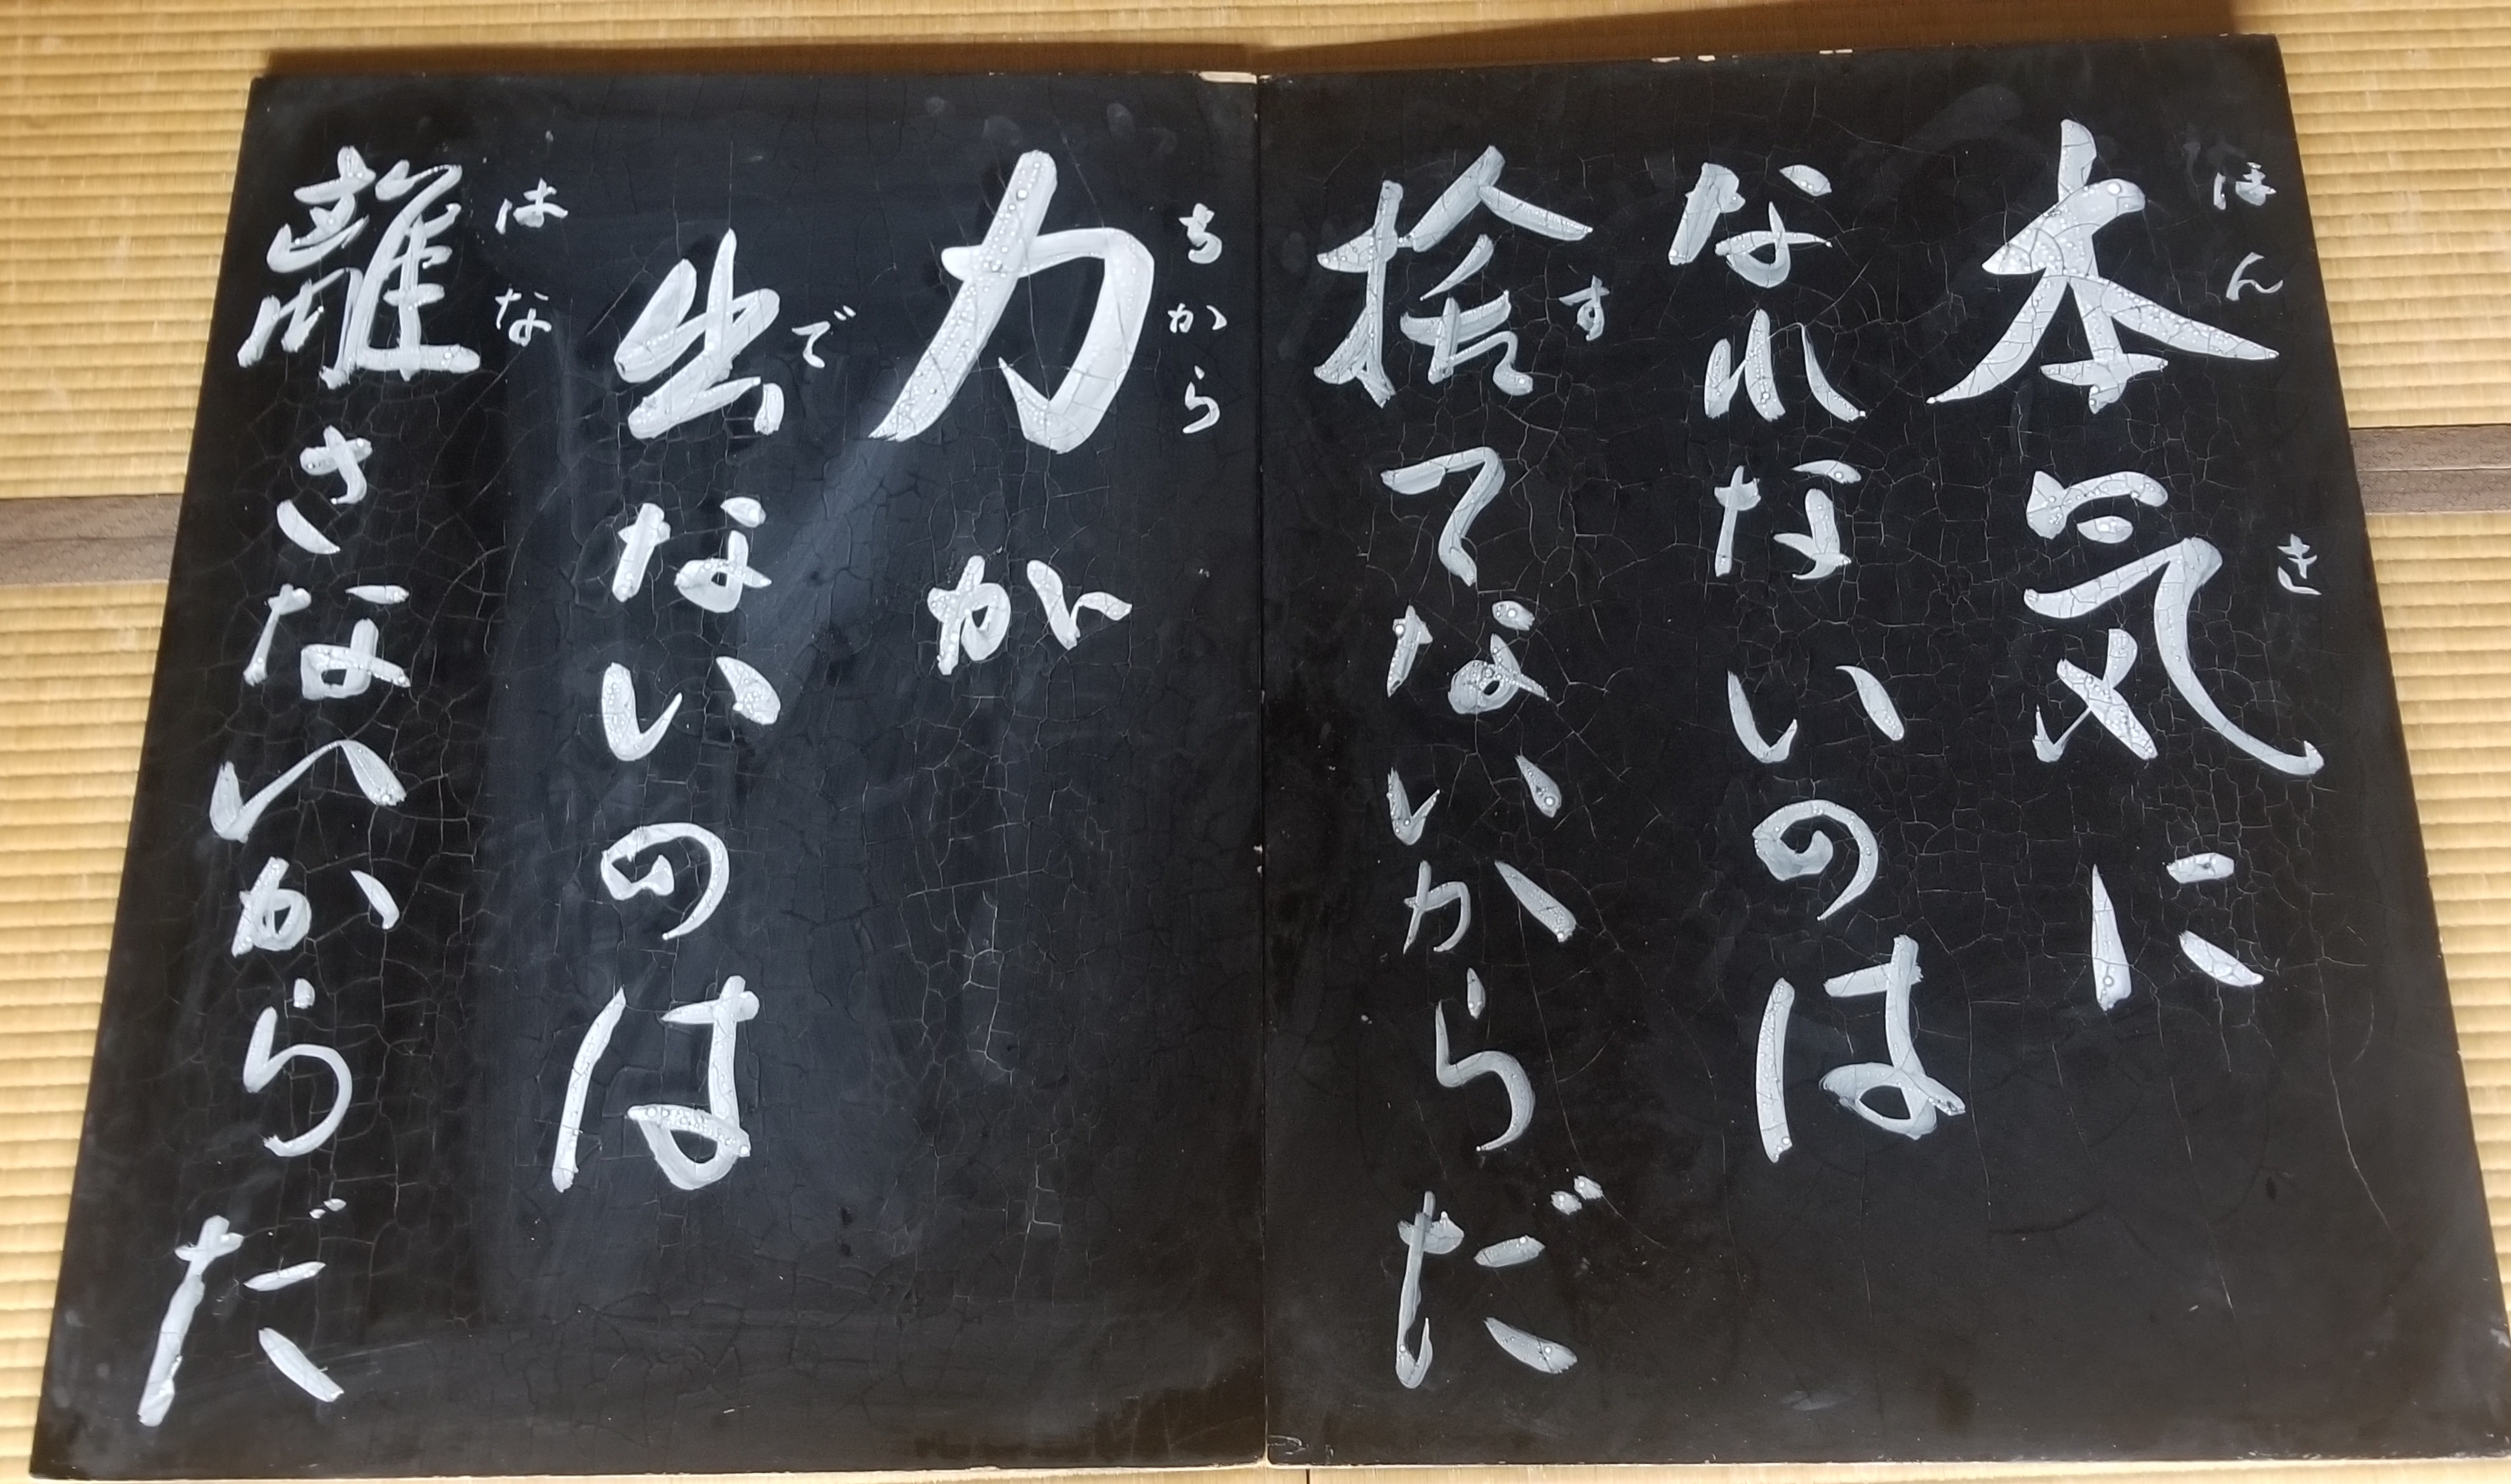 本気に
ほんき
なれないのは
捨てないからだ
す
力が
ちから
出ないのは
で
離さないからだ
はな